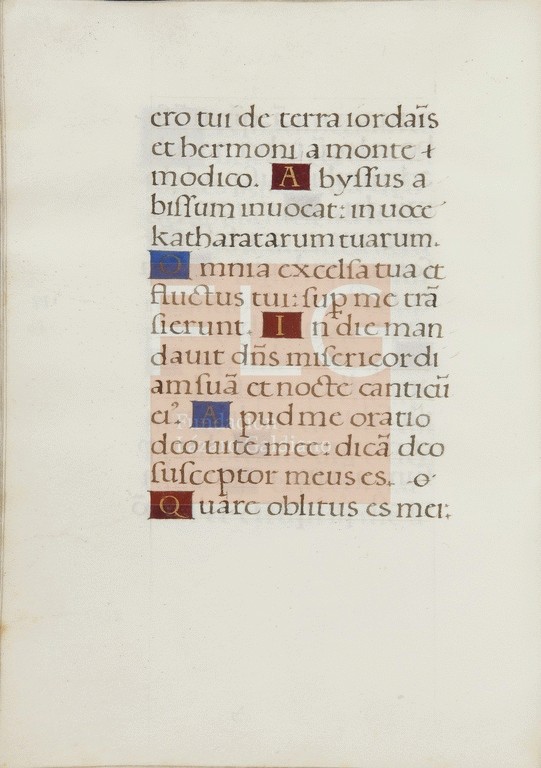 ero tui de terra iordaīs
et hermoni a monte +
modico. A byſſus a
biſſum inuocat: in uoce
katharatarum tuarum.
O mnia excelſa tua et
fluctus tui: ſup me trā
ſierunt. I n die man
dauit dn̄s miſericordi
am ſuā et nocte canticū
ei⁹. A pud me oratio
deo uitē meę: dicā deo
ſuſceptor meus es. -o-
Q uare oblitus es mei:
FLG
Fundación
Lázaro Galdiano